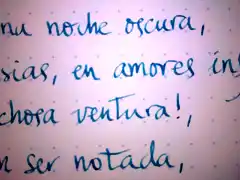 na noche oscura,
sias, en amores in
chosa ventura!,
n ser notada,